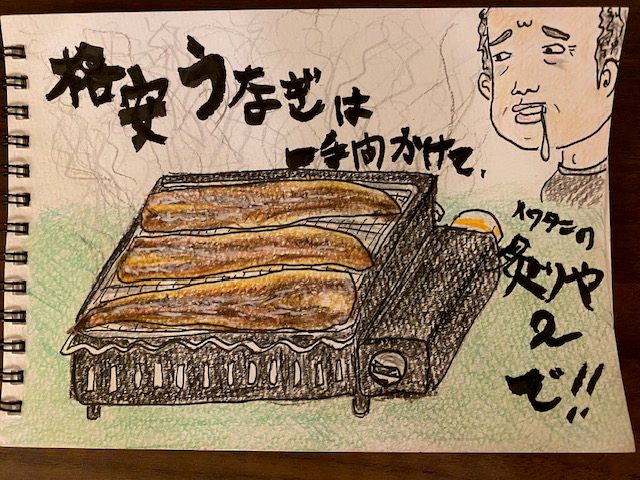 格安うなぎは
一手間かけて、
イワタニの
炙りや
2
で!!